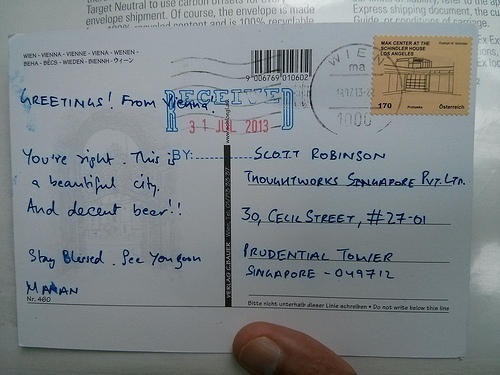 Target Neutral to use carbon offsets for every
envelope shipment. Of course, the envelope is made
Express shipping document, the cu
Guide, or conditions of carriage.
WIEN - VIENNA - VIENNE - VIENA - WENEN -
BEHA - BÉCS - WIEDEŇ - BIENNH - ウィーン
9 006769 010602
WIEN
1000
MAK CENTER AT THE
SCHINDLER HOUSE
LOS ANGELES
170
Österreich
GREETINGS! From Vienna.
RECEIVED
31 JUL 2013
BY:
You're right. This is
a beautiful city.
And decent beer!!
Stay Blessed. See You soon
Nr. 460
VERLAG C.BAUER
SCOTT ROBINSON
THOUGHTWORKS SINGAPORE PVT. LTD.
30, CECIL STREET, #27-01
PRUDENTIAL TOWER
SINGAPORE - 049712
Bitte nicht unterhalb dieser Linie schreiben • Do not write below this line